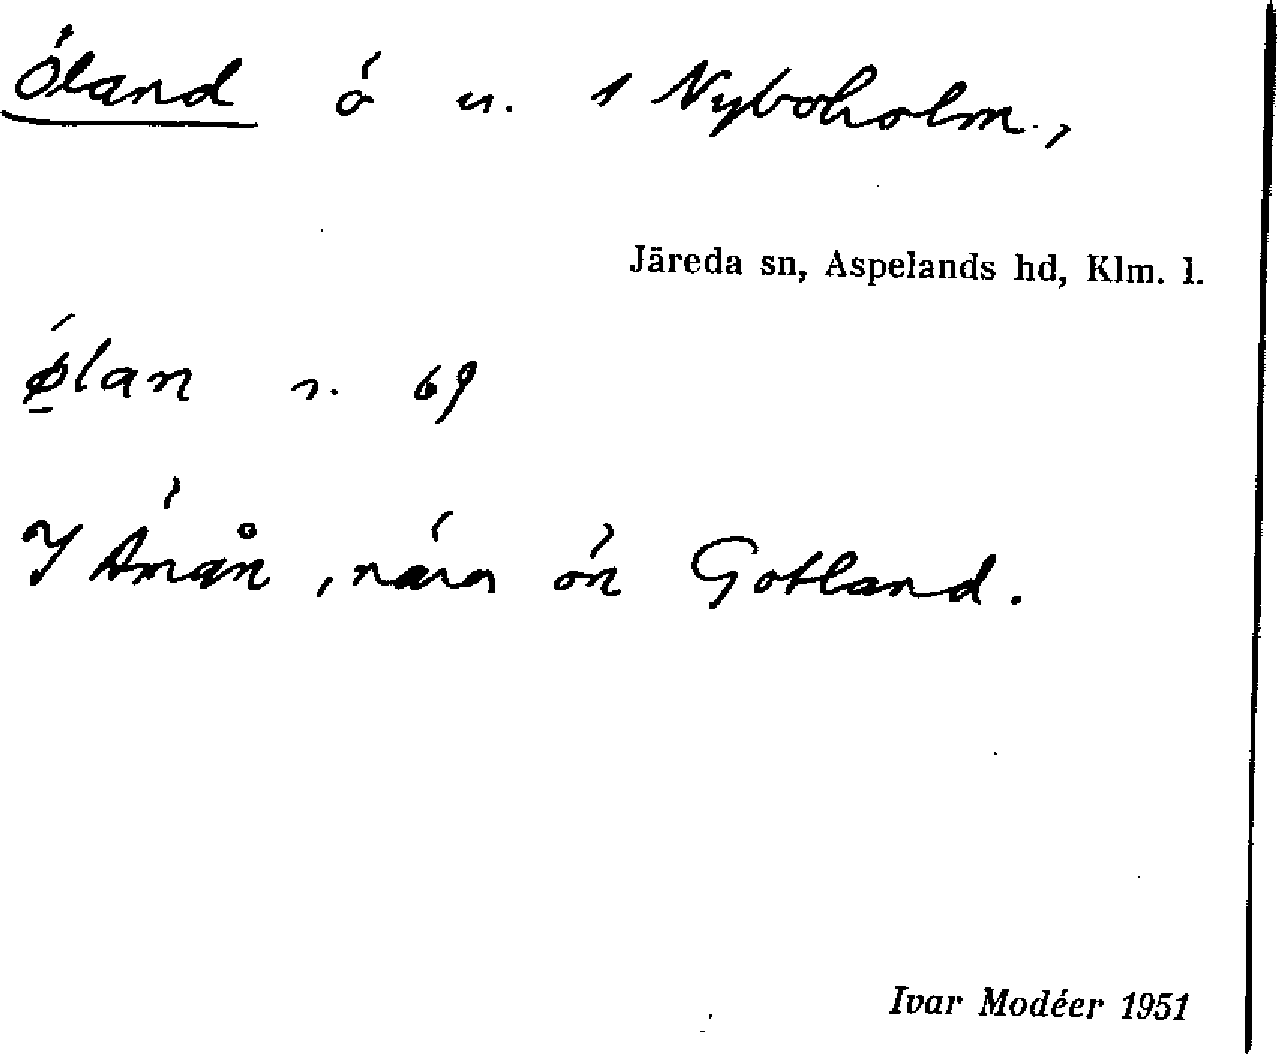 Öland ö u. 1 Nyboholm.,
Järeda sn, Aspelands hd, Klm. l.
ǿ̱lan s. 69
I Änån, nära ön Gotland.
Ivar Modéer 1951